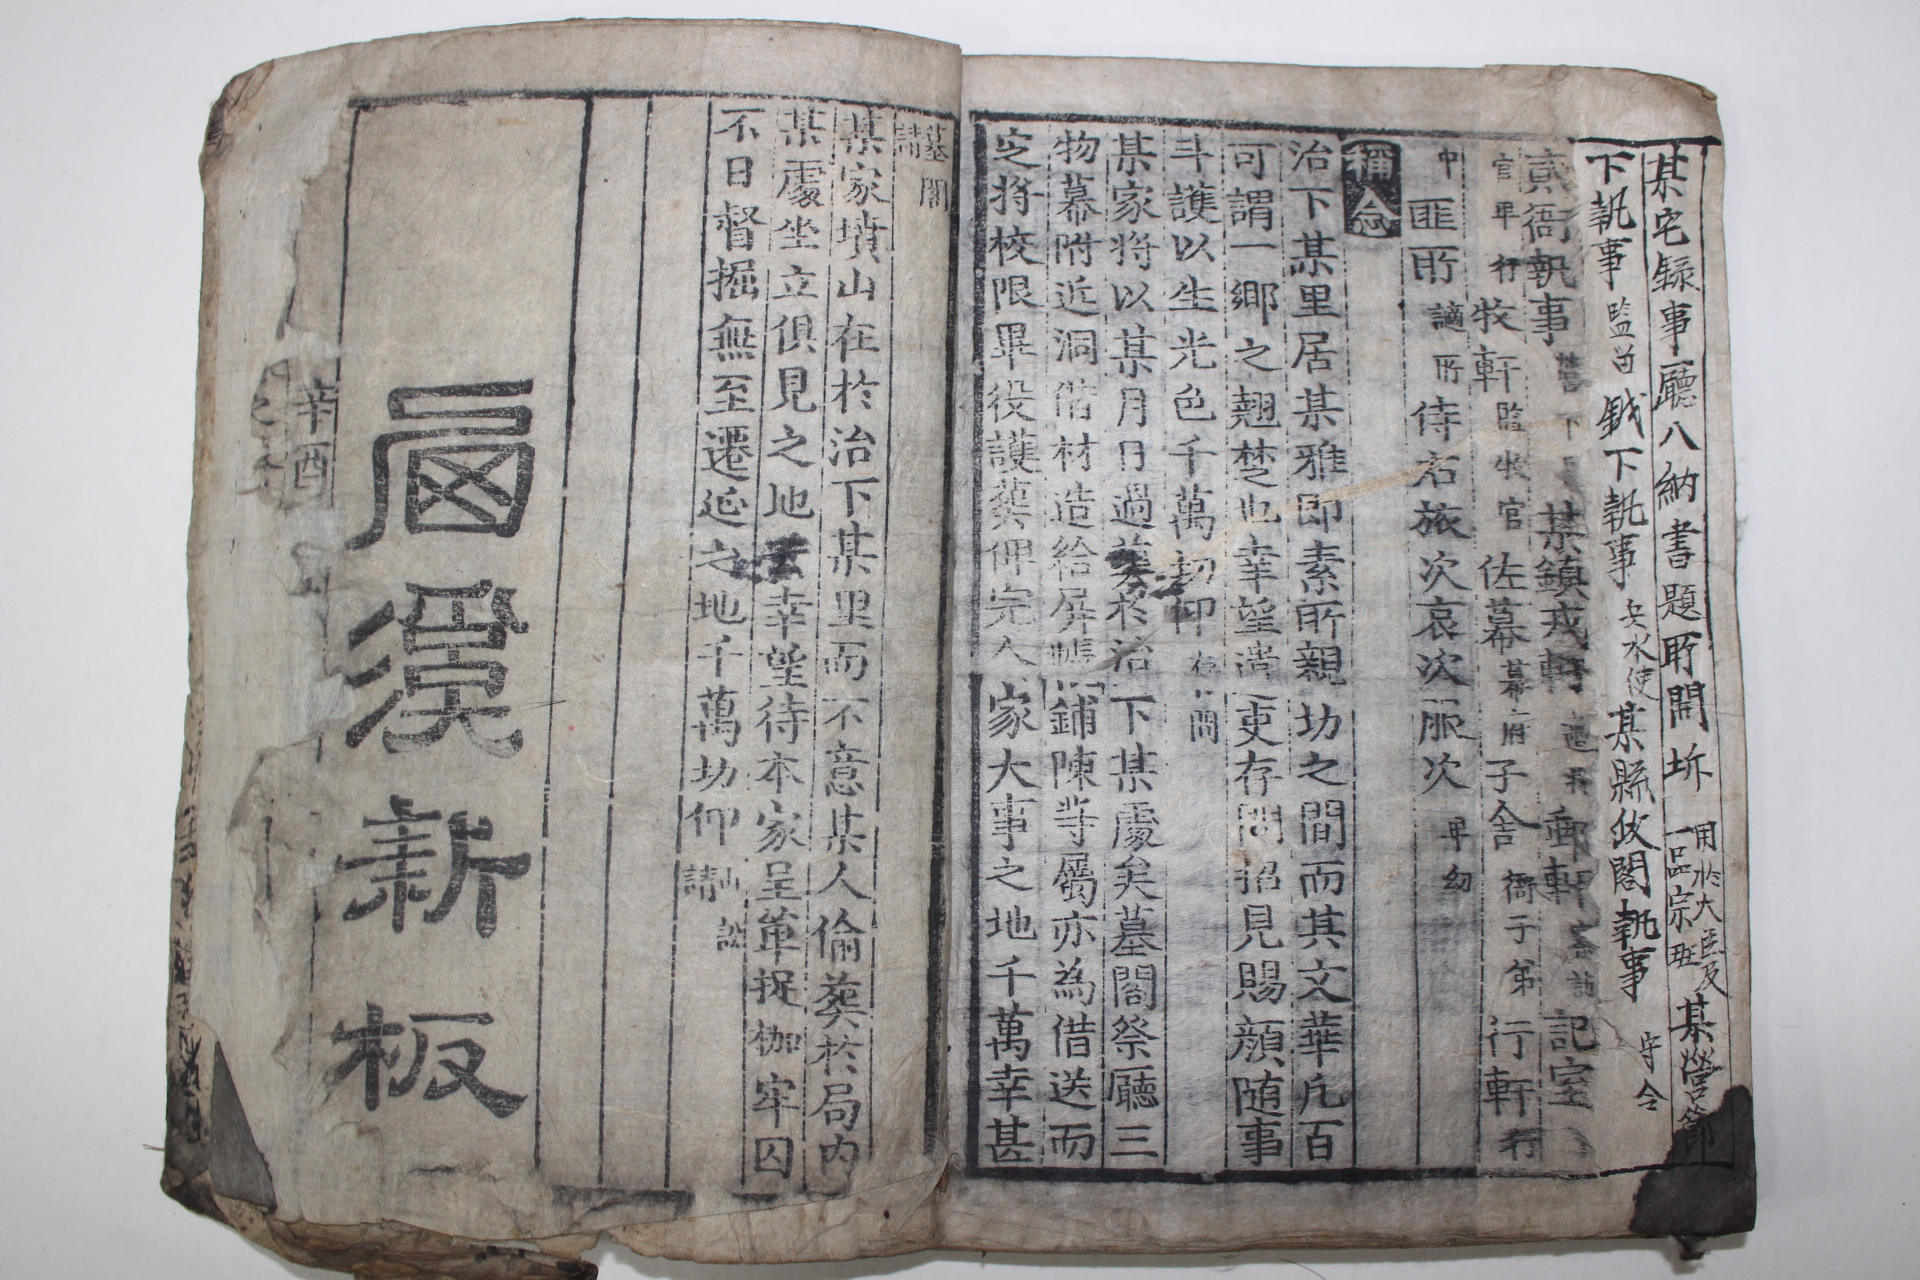 某宅錄事廳八納書題所開坼 用於大臣及一品宗班 某營節
下執事 監留 鉞下執事 兵水使 某縣政閤執事 守令
貳衙執事 某鎭戎軒 郵軒 記室
官畢行 牧軒 監牧官 佐幕 幕府 子舍 衙子弟 行軒 行
中 匪所 謫所 侍右旅次哀次服次 卑幼
稱念
治下某里居某雅卽素所親切之間而其文華凡百
可謂一鄕之翹楚也幸望遣吏存問招見賜顔隨事
斗護以生光色千萬切仰 存問
某家將以某月日過葬於治下某處矣墓閣祭廳三
物幕附近洞借材造給屛帳鋪陳等屬亦爲借送而
定將校限畢役護葬俾完人家大事之地千萬幸甚
請墓閣
某家墳山在於治下某里而不意某人偷葬於局內
某處坐立俱見之地云幸望待本家呈單捉枷牢囚
不日督掘無至遷延之地千萬切仰 請山訟
新板
辛酉